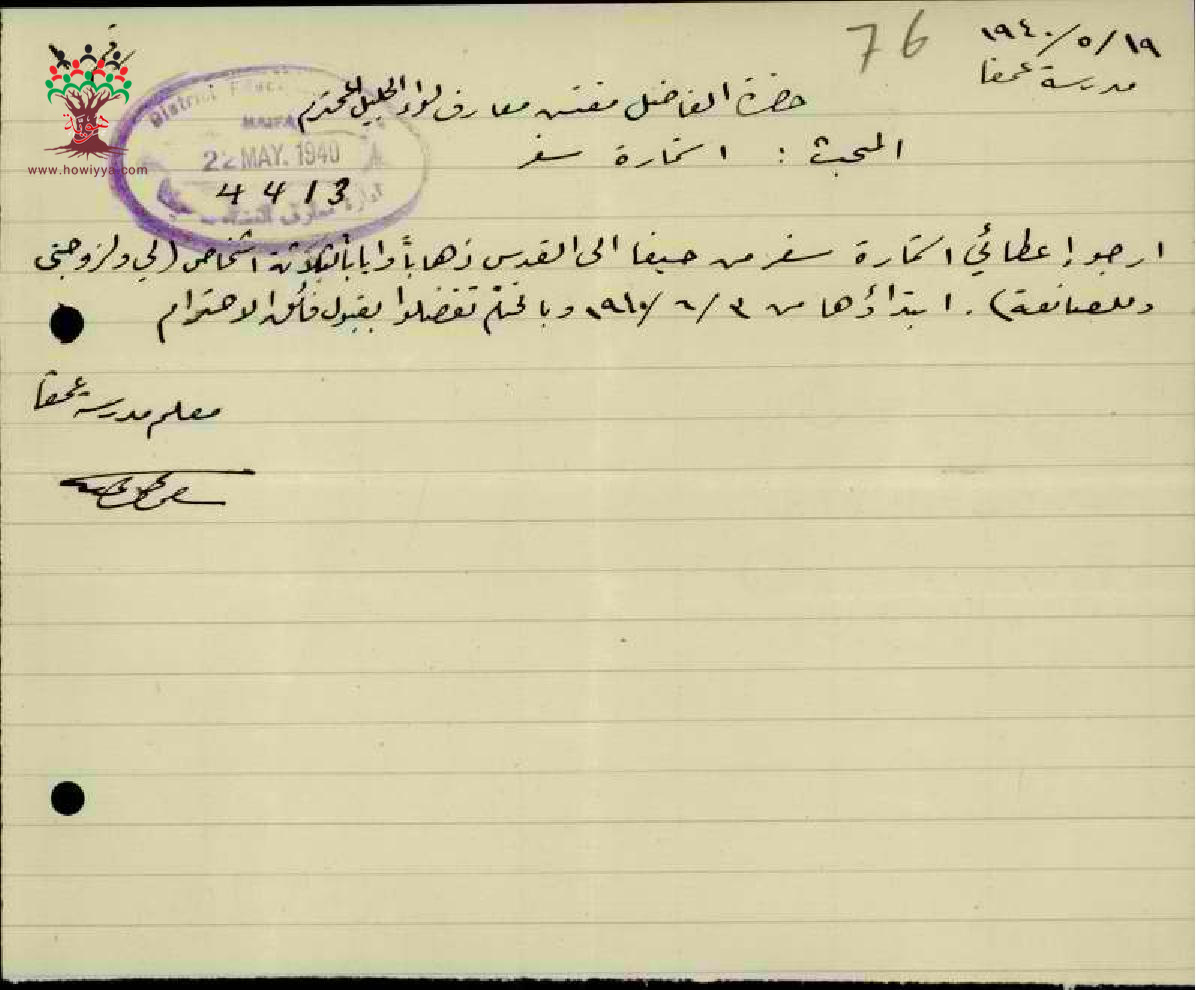 76
١٩٤٠/٥/١٩
مدرسة عمقا
حضرة الفاضل مفتش معارف لواء الجليل المحترم
المبحث : استمارة سفر
District
HAIFA
22 MAY. 1940
4413
هوية
www.howiyya.com
ارجو إعطائي استمارة سفر من حيفا الى القدس ذهاباً واياباً لثلاثة اشخاص (لي ولزوجتي
وللصانعة). ابتداؤها من ٣/٦/١٩٤٠ وبالختام تفضلوا بقبول فائق الاحترام
معلم مدرسة عمقا